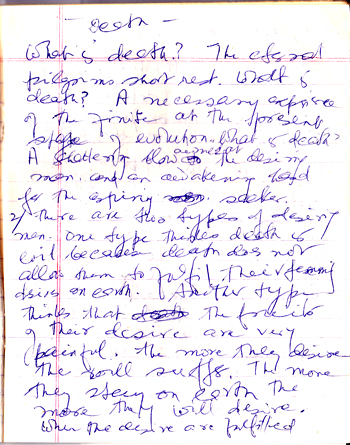 - Death -
What is death? The eternal
pilgrim's short rest. What is
death? A necessary experience
of the finite at the present
stage of evolution. What is death?
A shattering blow to the desiring
man and an awakening
for the aspiring seeker.
2) There are two types of desiring
men. One type thinks death is
evil because death does not
allow them to fulfil their teeming
desires on earth. Another type
thinks that the fruits
of their desire are very
painful. The more they desire
the will suffer. The more
they stay on earth the
more they will desire.
When the desire are fulfilled